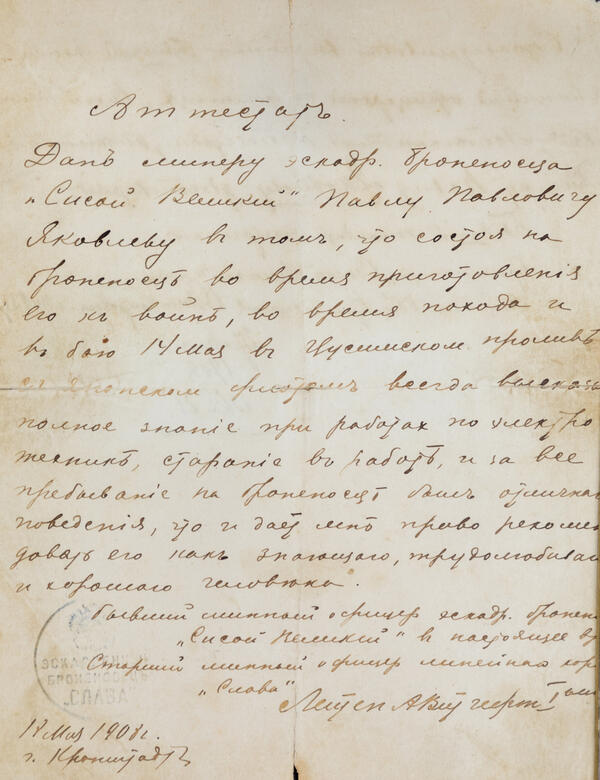 Аттестатъ.
Данъ минеру эскадр. броненосца
„Сисой Великій" Павлу Павловичу
Яковлеву въ томъ, что состоя на
броненосцѣ во время приготовленія
его къ войнѣ, во время похода и
въ бою 14 Мая въ Цусимском проливѣ
съ Японском флотомъ всегда выказа
полное знаніе при работах по электро
техникѣ, стараніе въ работѣ, и за все
пребываніе на броненосцѣ былъ отличнаг
поведенія, что и даетъ мнѣ право рекомен
довать его какъ знающаго, трудолюбиваг
и хорошаго человѣка.
бывший минный офицер эскадр. бронен
„Сисой Великій" в настоящее вр
Старший минный офицер линейнаго кор
„Слава"
Лейтен
18 Мая 1908 г.
г. Кронштадтъ